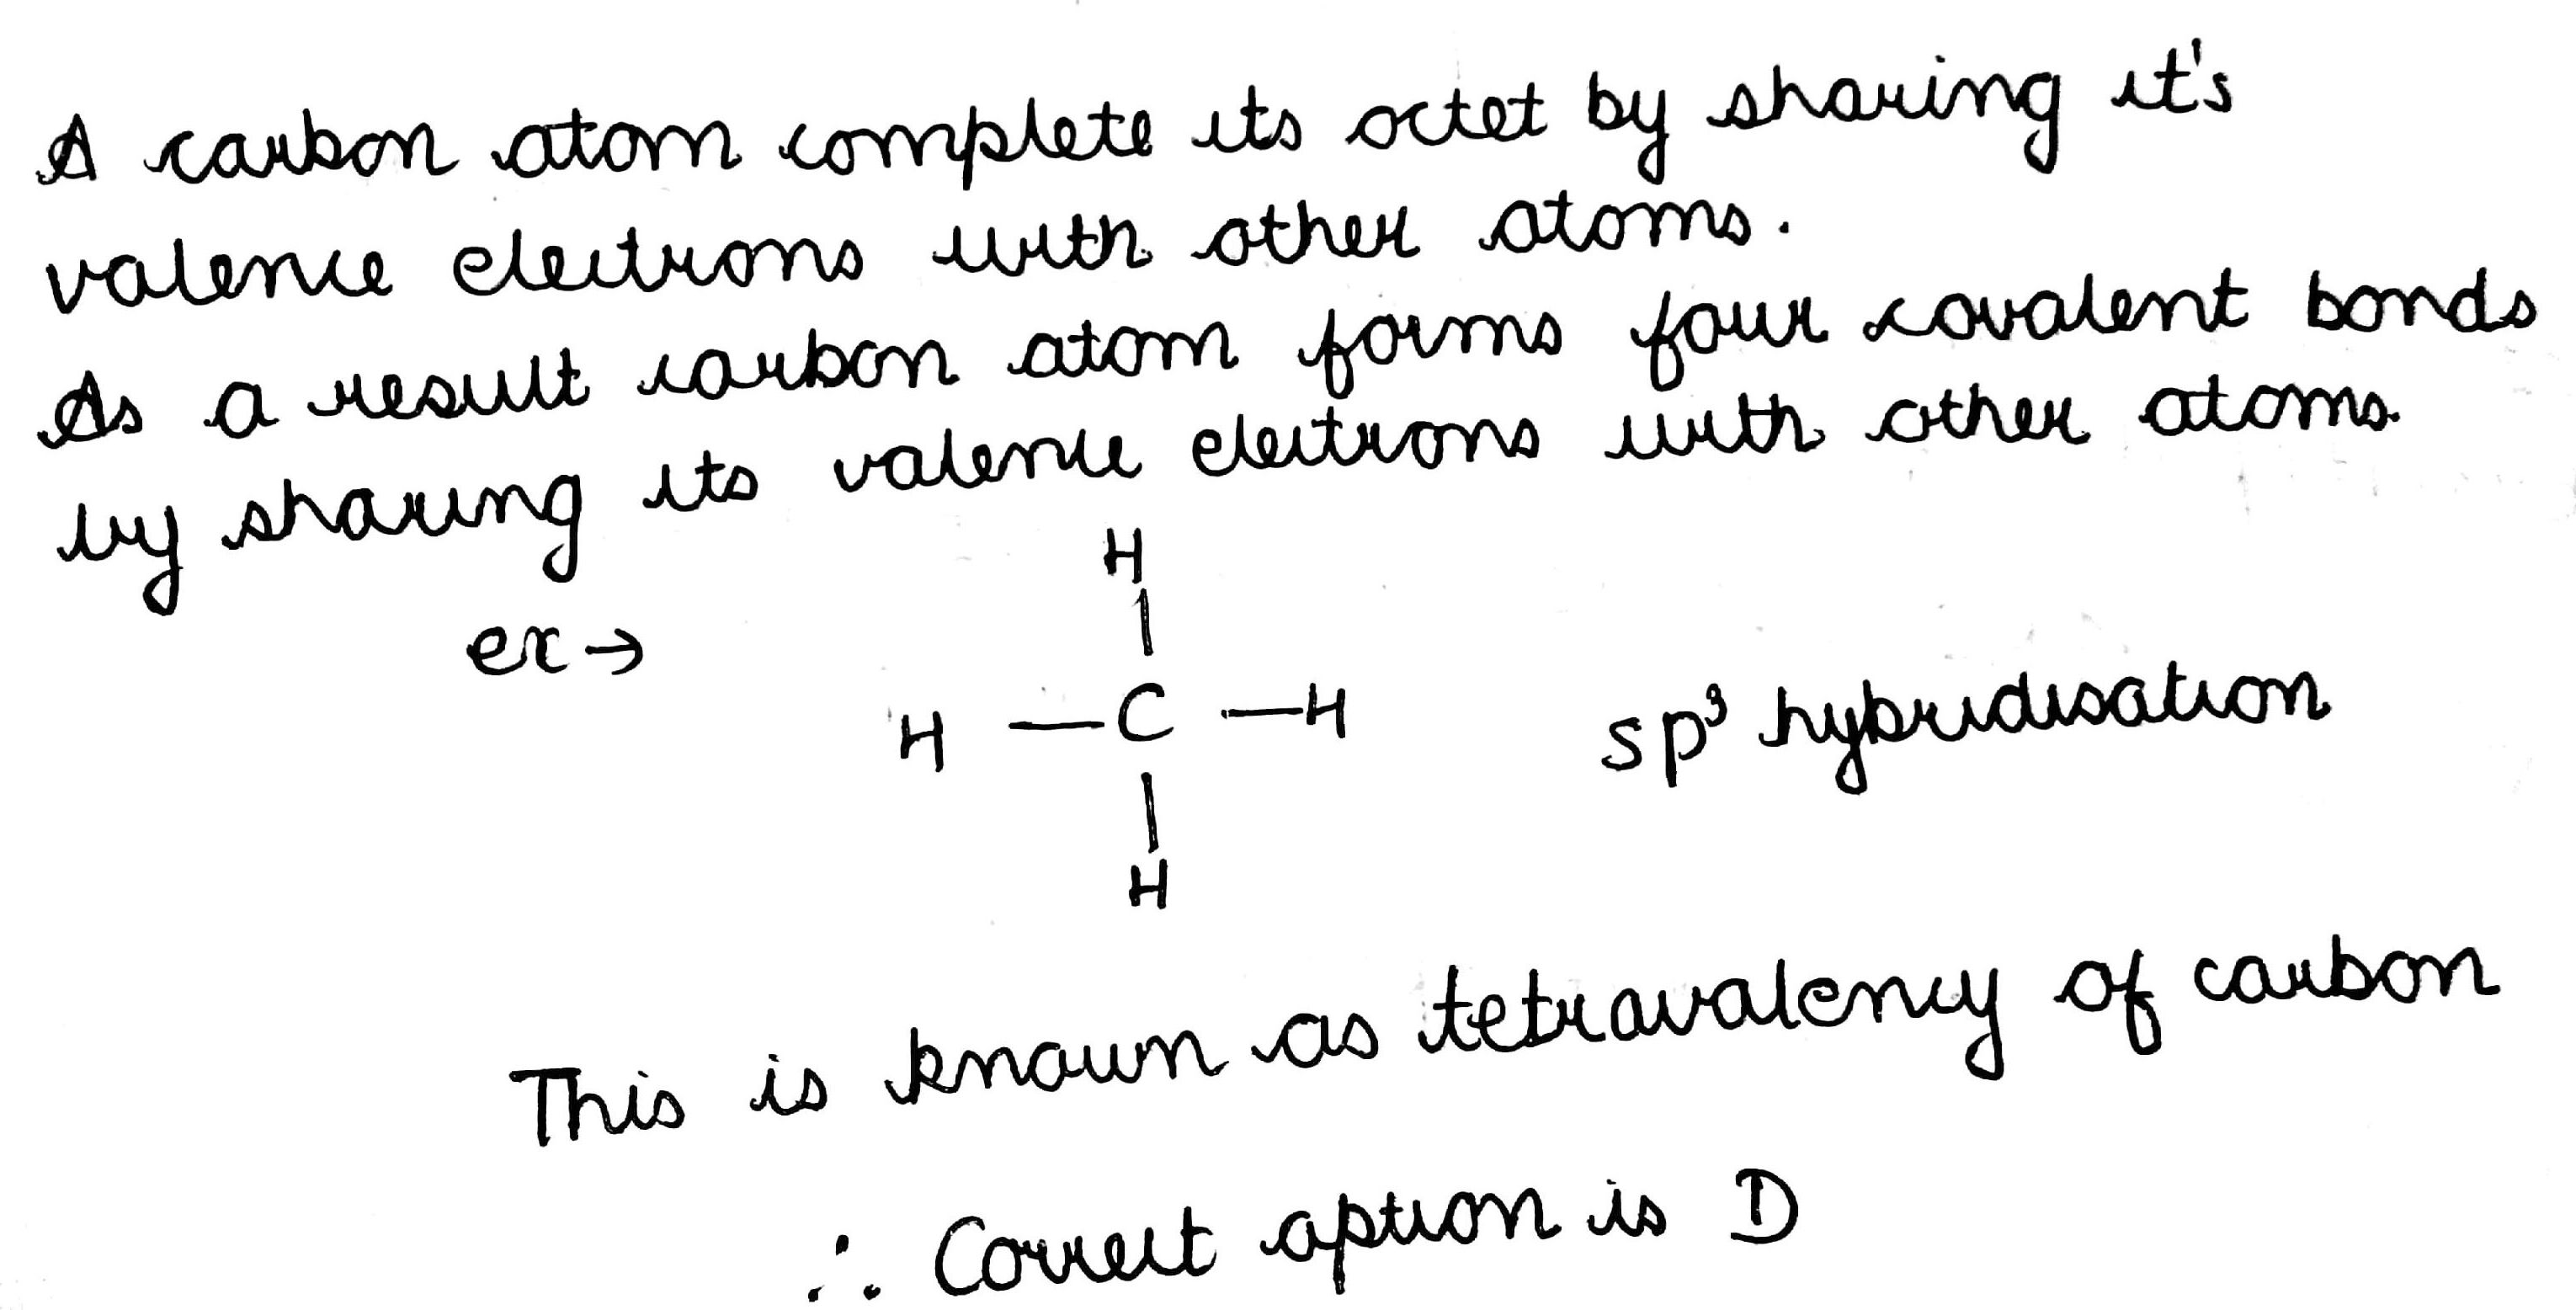 A carbon atom complete its octet by sharing it's
valence electrons with other atoms.
As a result carbon atom forms four covalent bonds
by sharing its valence electrons with other atoms.
H
ex →
H — C — H sp³ hybridisation
H
This is known as tetravalency of carbon
∴ Correct option is D